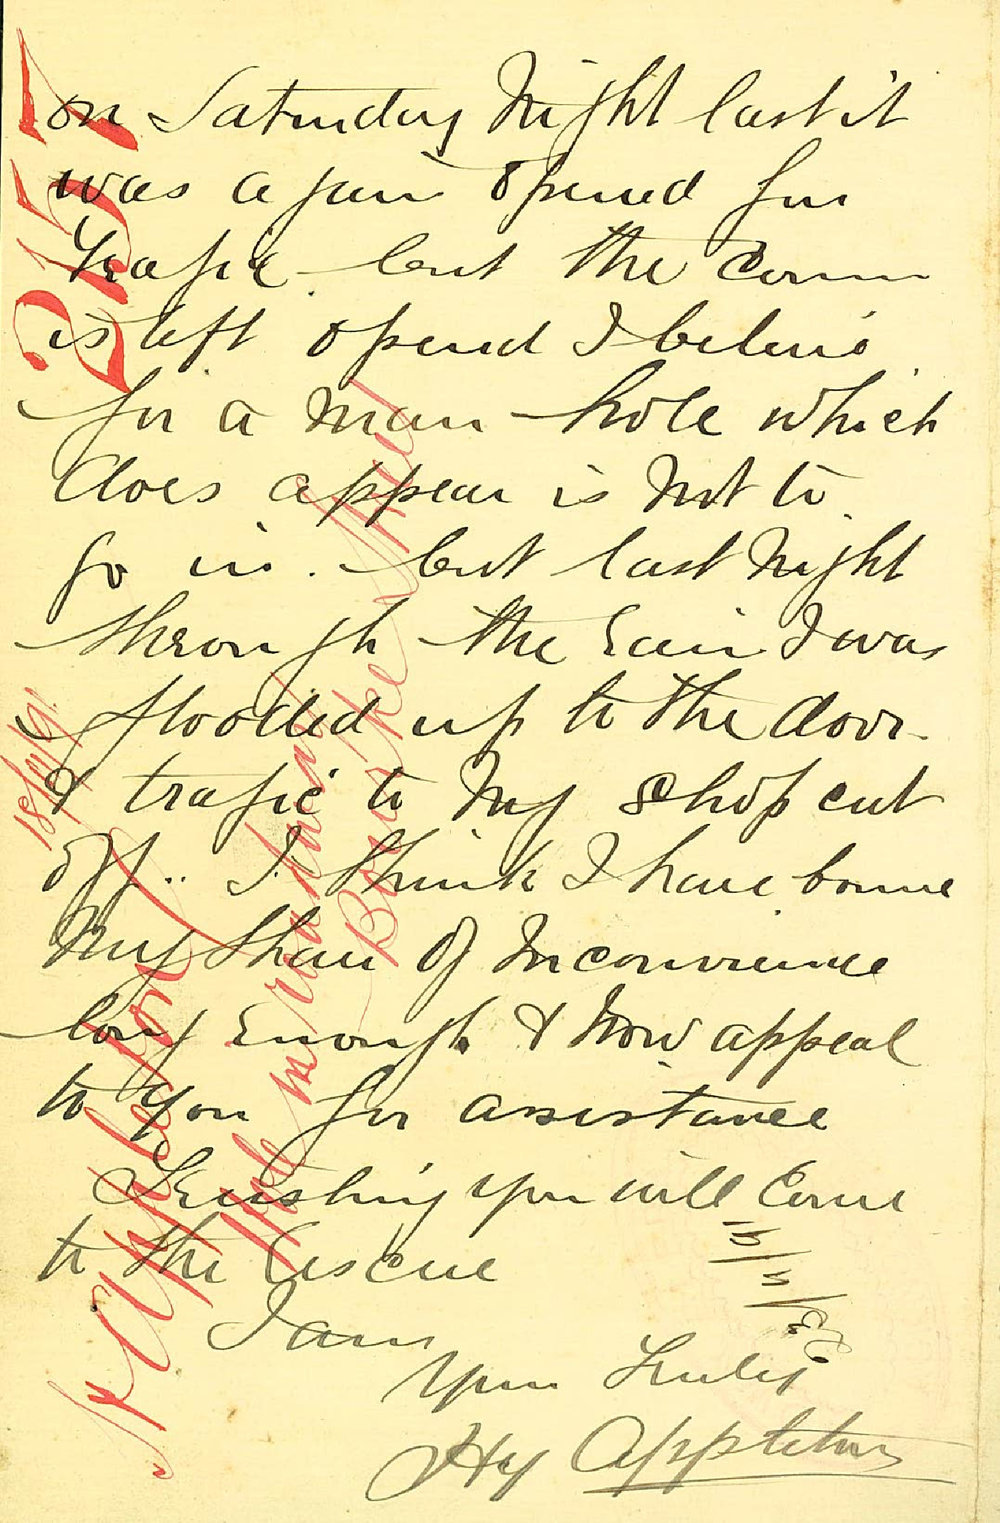 on Saturday Night last it
was again opened for
Trafic but the Corner
is left opened I believe
for a man hole which
does appear is Not to
go in. but last Night
through the Rain I was
flooded up to the door
& trafic to My shop cut
off.. I think I have borne
My Share of Inconvience
long Enough & Now appeal
to you for assistance
Trusting you will Come
to the Rescue
I am
Your Truly
Hy Appleton
2157
18/4/91
H Appleton